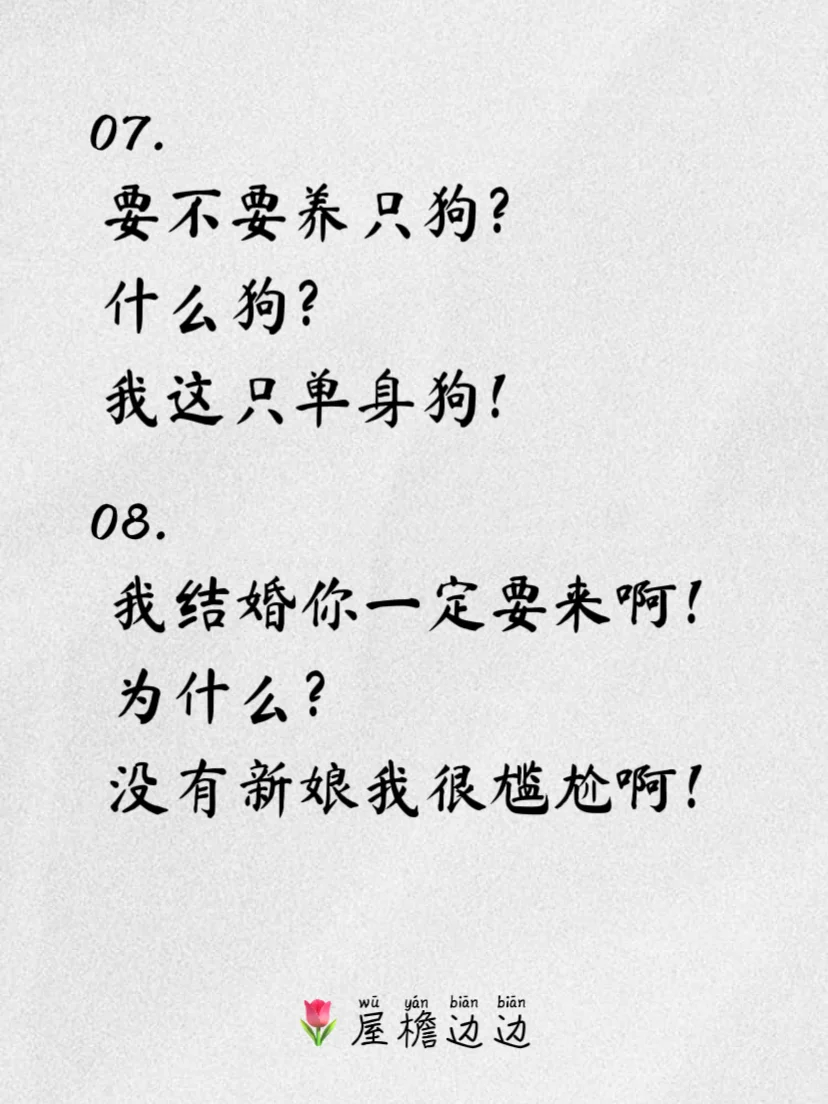 07.
要不要养只狗？
什么狗？
我这只单身狗！
08.
我结婚你一定要来啊！
为什么？
没有新娘我很尴尬啊！
wū yán biān biān
屋檐边边